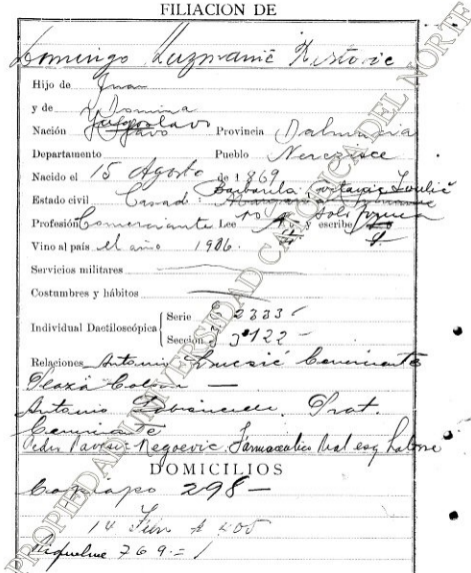 FILIACION DE
Domingo Kuzmanić Ristovic
Hijo de Juan
y de Domina
Nación Yugoslavo Provincia Dalmacia
Departamento Pueblo Nerezisce
Nacido el 15 Agosto de 1869
Estado civil Casado: Barbarita
Profesión Comerciante Lee no y escribe solo firma
Vino al país el año 1906.
Servicios militares
Costumbres y hábitos
Individual Dactiloscópica Serie E 2333
Sección I 122
Relaciones Antonio Comerciante
Plaza Colon —
Antonio Prat.
Comerciante
Pedro Negoevic, Farmaceutico esq Latorre
DOMICILIOS
Copiapo 298 —
14 500
Riquelme 769.=
PROPIEDAD UNIVERSIDAD CATOLICA DEL NORTE